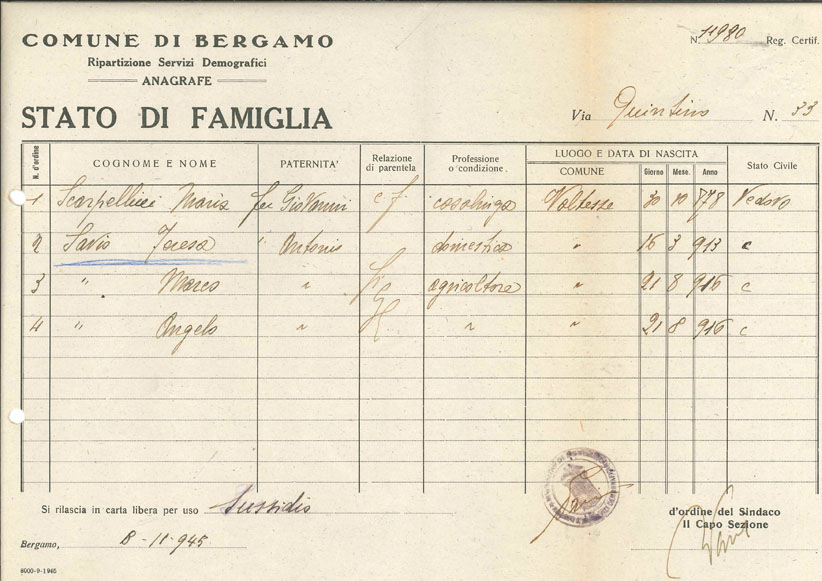 COMUNE DI BERGAMO
Ripartizione Servizi Demografici
ANAGRAFE
STATO DI FAMIGLIA
N. 11980 Reg. Certif.
Via Quintino N. 33
N. d'ordine COGNOME E NOME PATERNITA' Relazione di parentela Professione o condizione. LUOGO E DATA DI NASCITA COMUNE Giorno Mese. Anno Stato Civile
1 Scarpellini Maria fu Giovanni c f. casalinga Valtesse 30 10 878 Vedova
2 Savio Teresa " Antonio domestica " 16 3 913 c
3 " Marco " agricoltore " 21 8 916 c
4 " Angelo " " " 21 8 916 c
Si rilascia in carta libera per uso Sussidio
d'ordine del Sindaco
Il Capo Sezione
Bergamo, 8-11-945
8000-9-1945